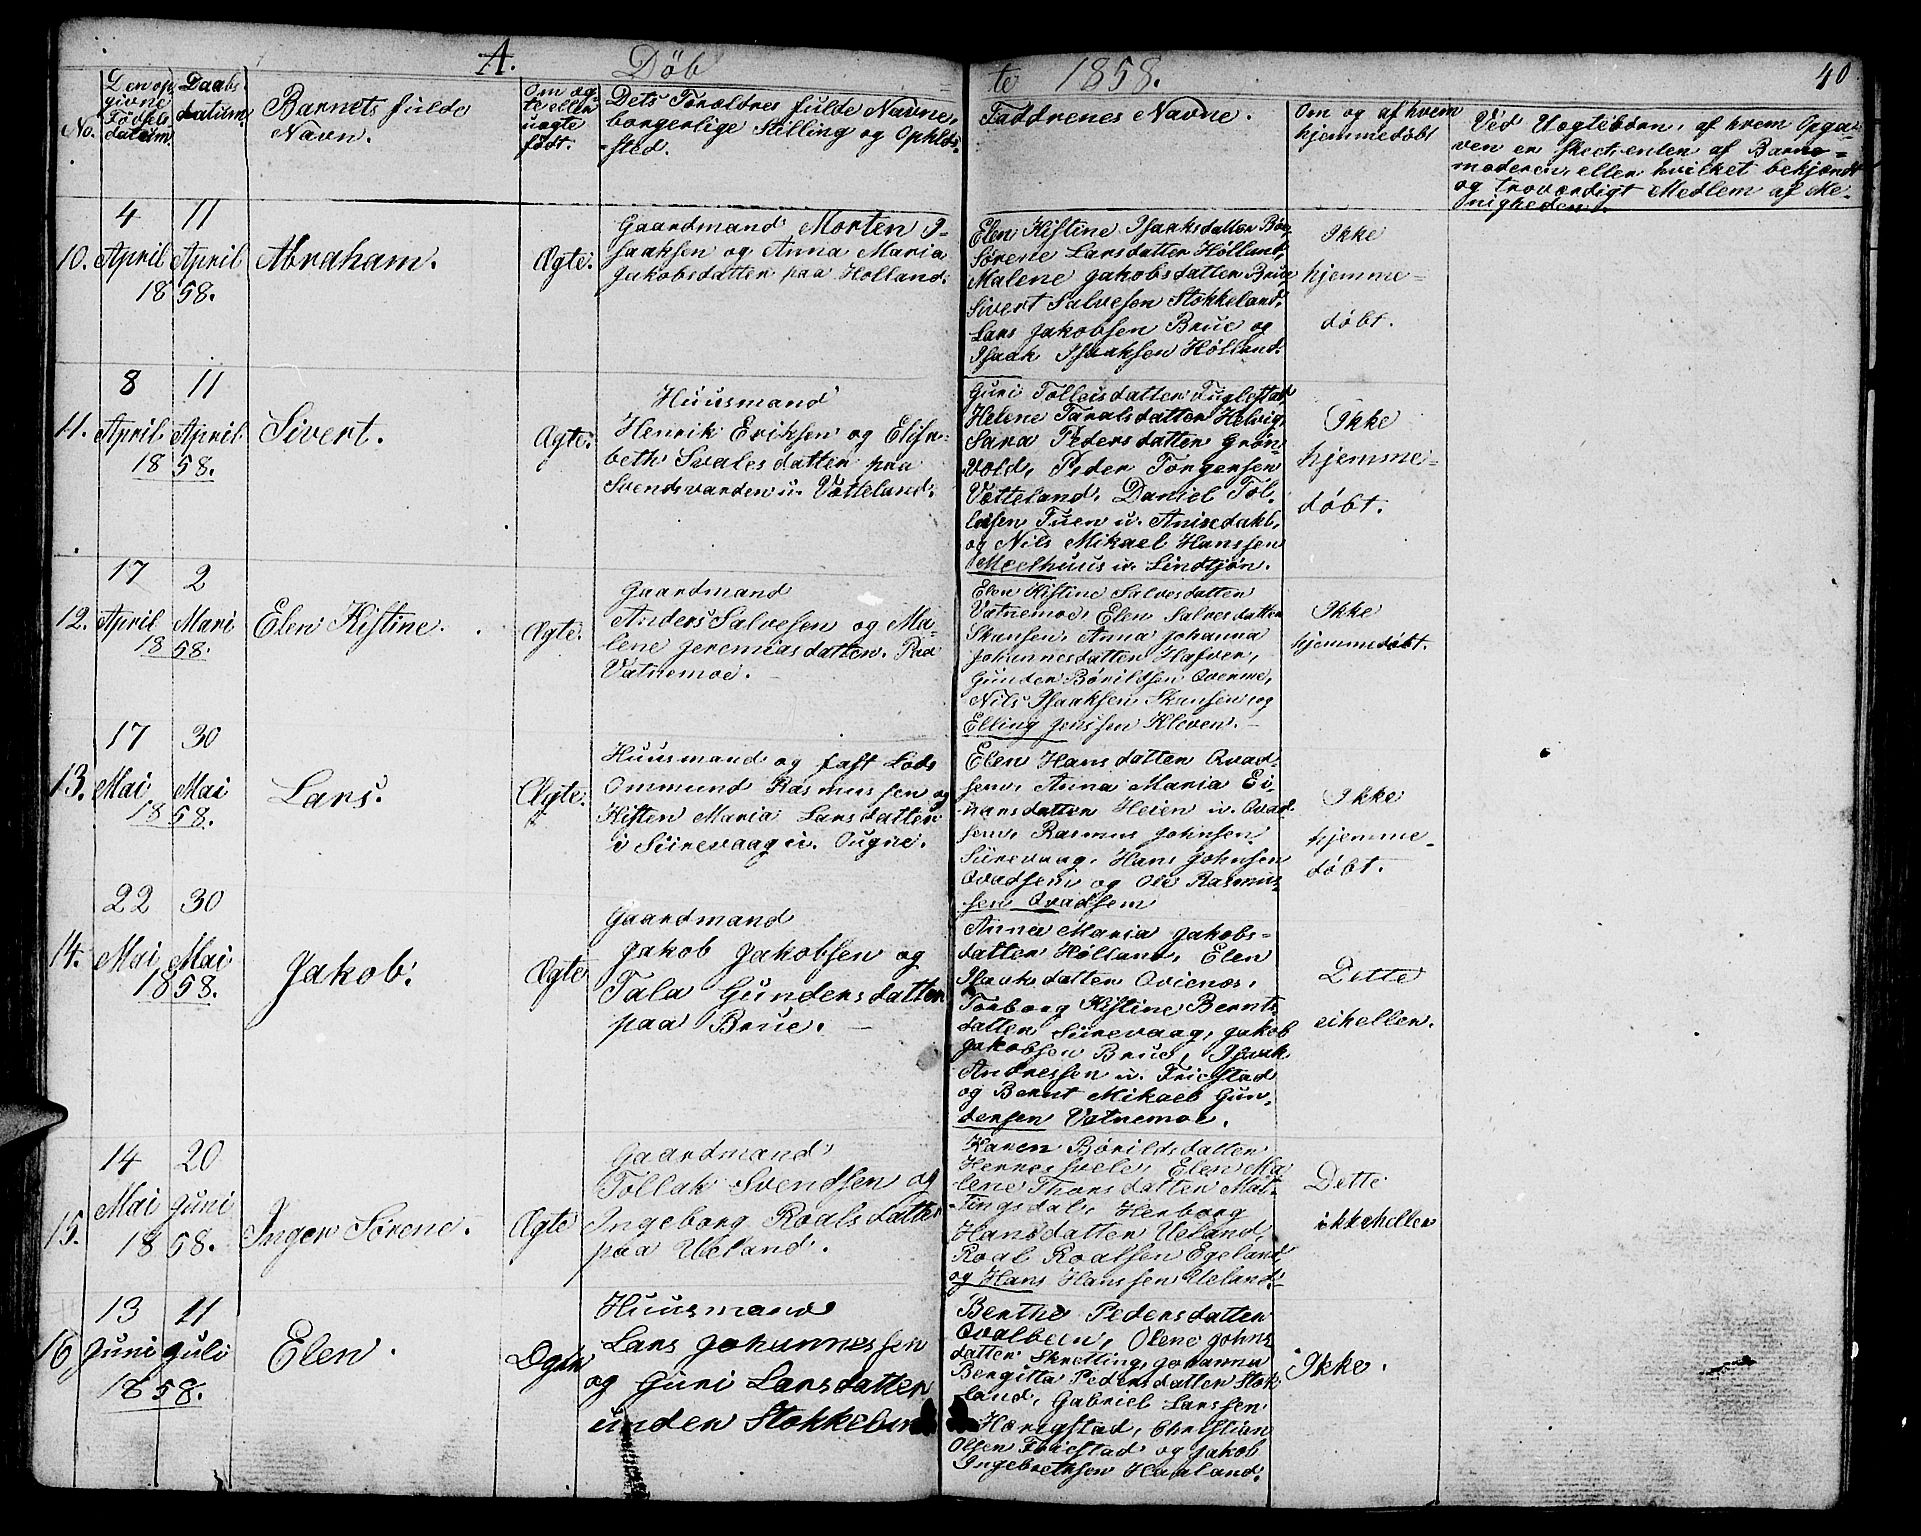 A. Døbte 1858. 40
No.
Den op
givne
Fødsels
datum.
Daabs
datum.
Barnets fulde
Navn.
Om æg-
te eller
uægte
født.
Dets Forældres fulde Navne,
borgerlige Stilling og Opholds-
sted.
Faddrenes Navne.
Om og af hvem
hjemmedøbt
Ved Uægtebørn, af hvem Opga-
ven er skeet, enten af Barne-
moderen, eller hvilket bekjendt
og troværdigt Medlem af Me-
nigheden.
10.
4 11
April April
18 58.
Abraham.
Ægte.
Gaardmand Morten I-
saaksen og Anna Maria
Jakobsdatter paa Hølland.
Elen Kistine Isaaksdatter Brue,
Sørene Larsdatter Hølland,
Malene Jakobsdatter Brue
Sivert Salvesen Stokkeland,
Lars Jakobsen Brue og
Isaak Isaaksen Hølland.
Ikke
hjemme-
døbt.
11.
8 11
April April
18 58.
Sivert.
Ægte.
Huusmand
Henrik Eriksen og Elisa-
beth Svalesdatter paa
Svendsvarden u. Vatteland.
Guri Tolleisdatter Fuglestad,
Helene Taralsdatter Helvig,
Sara Pedersdatter Grøn-
vold, Peder Torgersen
Vatteland, Daniel Tol-
leisen Tuen u. Anisedahl,
og Nils Mikael Hanssen
Meelhuus u. Lindtjøn.
Ikke
hjemme-
døbt.
12.
17 2
April Mai
18 58.
Elen Kistine.
Ægte.
Gaardmand
Anders Salvesen og Ma-
lene Jeremiasdatter. Paa
Vatnemoe.
Elen Kistine Salvesdatter
Vatnemoe, Elen Salvesdatter
Skansen, Anna Johanna
Johannesdatter Hafver,
Gunder Børildsen Qverme,
Nils Isaaksen Skansen og
Elling Jenssen Kleven.
Ikke
hjemmedøbt.
13.
17 30
Mai Mai
18 58.
Lars.
Ægte.
Huusmand og fast Lods
Ommund Rasmussen og
Kisten Maria Larsdatter
i Siirevaag u. Ougne.
Elen Hansdatter Qvad-
sem, Anna Maria Ei-
narsdatter Heien u. Qvad-
sem, Rasmus Johnsen
Siirevaag, Hans Johnsen
Qvadsem og Ole Rasmus-
sen Qvadsem
Ikke
hjemme-
døbt.
14.
22 30
Mai Mai
18 58.
Jakob.
Ægte
Gaardmand
Jakob Jakobsen og
Tala Gundersdatter
paa Brue.
Anna Maria Jakobs-
datter Hølland, Elen
Isaaksdatter Qvienæs,
Torborg Kistine Bernts-
datter Siirevaag, Jakob
Jakobsen Brue, Isaak
Andressen u. Friestad
og Bernt Mikael Gun-
dersen Vatnemoe.
Dette
ei heller.
15.
14 20
Mai Juni
18 58.
Inger Sørene.
Ægte
Gaardmand
Tollak Svendsen og
Ingeborg Roalsdatter
paa Ueland.
Karen Børildsdatter
Hermes Elen Ma-
lene Thorsdatter Mat-
tingsdal, Herborg
Hansdatter Ueland,
Roal Roalsen Egeland
og Hans Hanssen Ueland.
Dette
ikke heller
16
13 11
Juni Juli
18 58.
Elen.
Huusmand
Lars Johannessen
og Guri Larsdatter
under
Berthe Pedersdatter
Qvalbein, Olene Johns-
datter Skretting, Johanna
Bergitta Pedersdatter Stok-
land, Gabriel Larssen
Hærigstad, Christian
Olsen Friestad og Jakob
Ingebretsen Haaland.
Ikke.